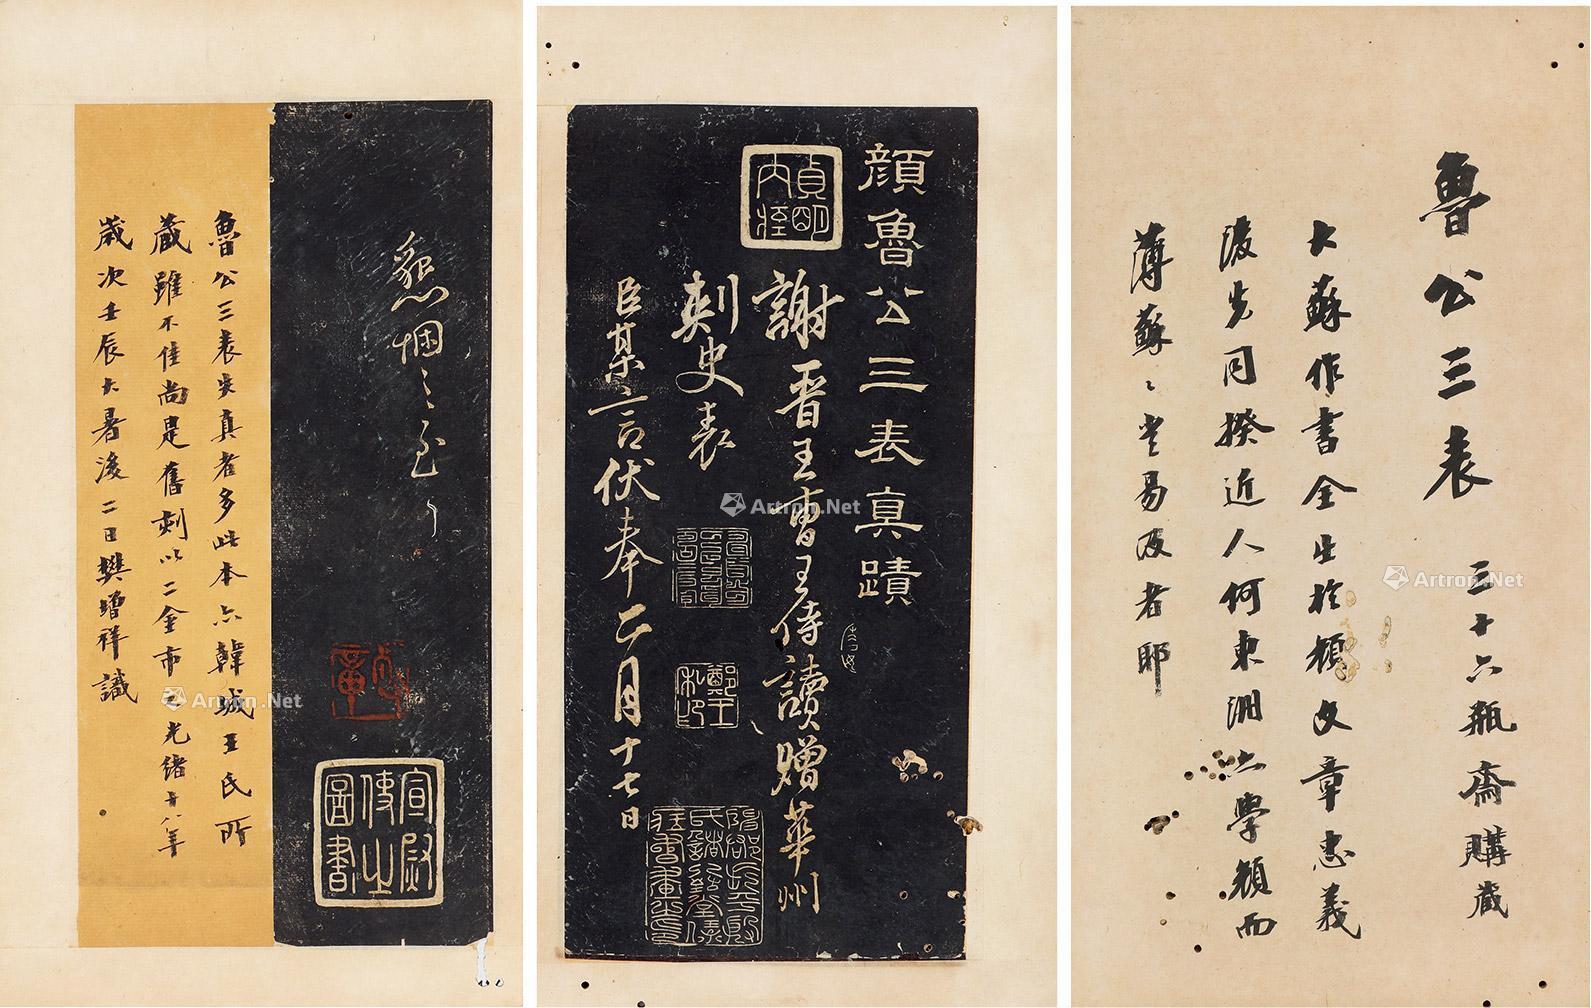 魯公三表 三十六瓶齋購藏
大蘇作書全出於顏文章忠義
後先同揆近人何東洲亦學顏而
薄蘇蘇豈易及者耶
顏魯公三表真蹟
貞明內府
謝晉王曹王侍讀贈華州
刺史表
臣某言伏奉二月十七日
鄭王私印
懇悃之至
宣慰使之圖書
魯公三表失真者多此本亦韓城王氏所
藏雖不佳尚是舊刻以二金市之光緒十八年
歲次壬辰大暑後二日樊增祥識
Artron.Net
Artron.Net
Artron.Net